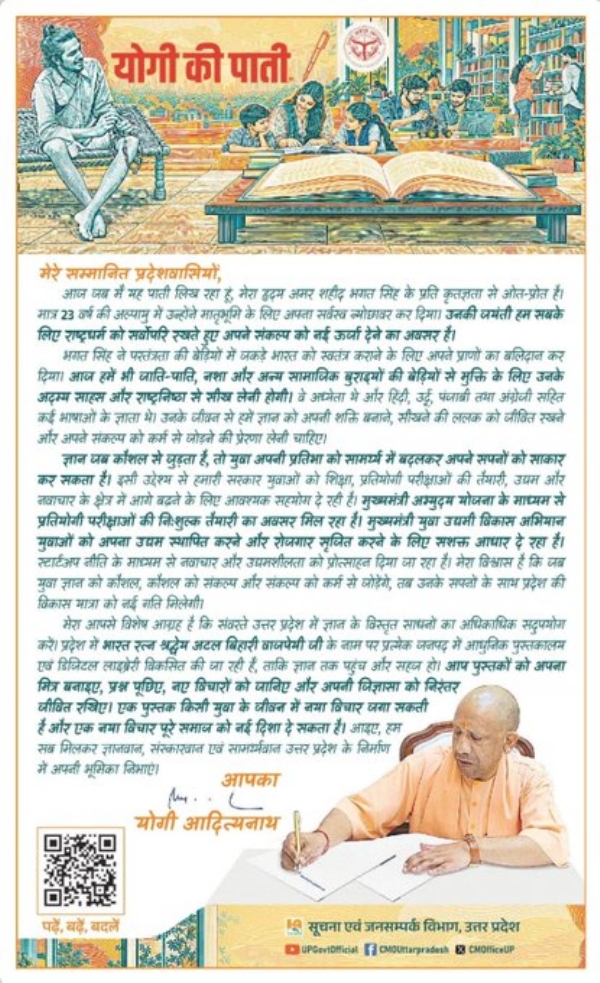 योगी की पाती
मेरे सम्मानित प्रदेशवासियों,
आज जब मैं यह पाती लिख रहा हूं, मेरा हृदय अमर शहीद भगत सिंह के प्रति कृतज्ञता से ओत-प्रोत है।
मात्र 23 वर्ष की अल्पायु में उन्होंने मातृभूमि के लिए अपना सर्वस्व न्योछावर कर दिया। उनकी जयंती हम सबके
लिए राष्ट्रधर्म को सर्वोपरि रखते हुए अपने संकल्प को नई ऊर्जा देने का अवसर है।
भगत सिंह ने परतंत्रता की बेड़ियों में जकड़े भारत को स्वतंत्र कराने के लिए अपने प्राणों का बलिदान कर
दिया। आज हमें भी जाति-पाति, नशा और अन्य सामाजिक बुराइयों की बेड़ियों से मुक्ति के लिए उनके
अदम्य साहस और राष्ट्रनिष्ठा से सीख लेनी होगी। वे अध्येता थे और हिंदी, उर्दू, पंजाबी तथा अंग्रेजी सहित
कई भाषाओं के ज्ञाता थे। उनके जीवन से हमें ज्ञान को अपनी शक्ति बनाने, सीखने की ललक को जीवित रखने
और अपने संकल्प को कर्म से जोड़ने की प्रेरणा लेनी चाहिए।
ज्ञान जब कौशल से जुड़ता है, तो युवा अपनी प्रतिभा को सामर्थ्य में बदलकर अपने सपनों को साकार
कर सकता है। इसी उद्देश्य से हमारी सरकार युवाओं को शिक्षा, प्रतियोगी परीक्षाओं की तैयारी, उद्यम और
नवाचार के क्षेत्र में आगे बढ़ने के लिए आवश्यक सहयोग दे रही है। मुख्यमंत्री अभ्युदय योजना के माध्यम से
प्रतियोगी परीक्षाओं की निःशुल्क तैयारी का अवसर मिल रहा है। मुख्यमंत्री युवा उद्यमी विकास अभियान
युवाओं को अपना उद्यम स्थापित करने और रोजगार सृजित करने के लिए सशक्त आधार दे रहा है।
स्टार्टअप नीति के माध्यम से नवाचार और उद्यमशीलता को प्रोत्साहन दिया जा रहा है। मेरा विश्वास है कि जब
युवा ज्ञान को कौशल, कौशल को संकल्प और संकल्प को कर्म से जोड़ेंगे, तब उनके सपनों के साथ प्रदेश की
विकास यात्रा को नई गति मिलेगी।
मेरा आपसे विशेष आग्रह है कि संवरते उत्तर प्रदेश में ज्ञान के विस्तृत साधनों का अधिकाधिक सदुपयोग
करें। प्रदेश में भारत रत्न श्रद्धेय अटल बिहारी वाजपेयी जी के नाम पर प्रत्येक जनपद में आधुनिक पुस्तकालय
एवं डिजिटल लाइब्रेरी विकसित की जा रही है, ताकि ज्ञान तक पहुंच और सहज हो। आप पुस्तकों को अपना
मित्र बनाइए, प्रश्न पूछिए, नए विचारों को जानिए और अपनी जिज्ञासा को निरंतर
जीवित रखिए। एक पुस्तक किसी युवा के जीवन में नया विचार जगा सकती
है और एक नया विचार पूरे समाज को नई दिशा दे सकता है। आइए, हम
सब मिलकर ज्ञानवान, संस्कारवान एवं सामर्थ्यवान उत्तर प्रदेश के निर्माण
में अपनी भूमिका निभाएं।
आपका
योगी आदित्यनाथ
पढ़ें, बढ़ें, बदलें
सूचना एवं जनसम्पर्क विभाग, उत्तर प्रदेश
UPGovtOfficial CMOUttarpradesh CMOfficeUP